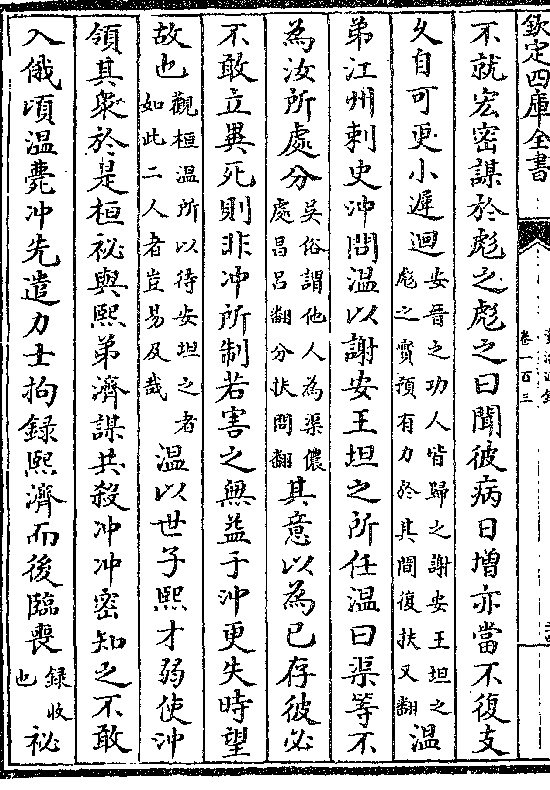 欽定四庫全書
卷一百三
不就宏密謀於彪之彪之曰聞彼病日增亦當不復支
久自可更小遲迴安晉之功人皆歸之謝安王坦之彪之實預有力於其間復扶又翻溫
弟江州刺史冲問溫以謝安王坦之所任溫曰渠等不
為汝所處分吳俗謂他人為渠儂處昌吕翻分扶問翻其意以為已存彼必
不敢立異死則非冲所制若害之無益于冲更失時望
故也觀桓溫所以待安坦之者如此二人者豈易及哉溫以世子熙才弱使冲
領其衆於是桓祕與熙弟濟謀共殺冲冲密知之不敢
入俄頃溫薨冲先遣力士拘録熙濟而後臨喪録收也祕